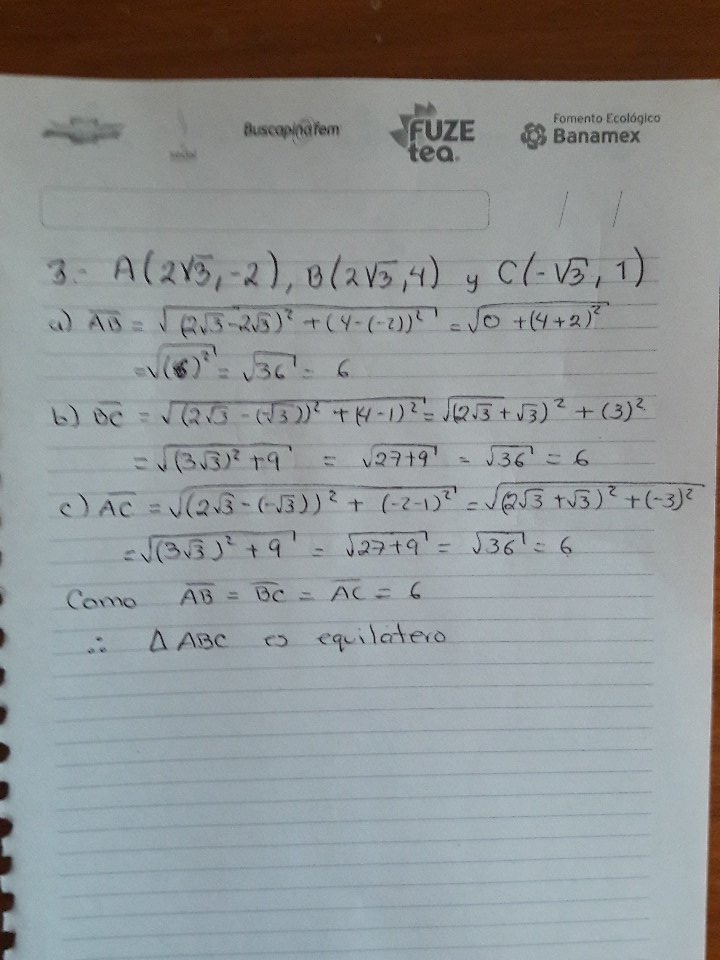 Buscapina fem
FUZE
tea
Fomento Ecológico
Banamex
/ /
3.- A(2√3, -2), B(2√3, 4) y C(-√3, 1)
a) AB = √(2√3-2√3)² + (4-(-2))² = √0 + (4+2)²
= √(6)² = √36 = 6
b) BC = √(2√3 - (-√3))² + (4-1)² = √(2√3 + √3)² + (3)²
= √(3√3)² + 9 = √27+9 = √36 = 6
c) AC = √(2√3 - (-√3))² + (-2-1)² = √(2√3 + √3)² + (-3)²
= √(3√3)² + 9 = √27+9 = √36 = 6
Como AB = BC = AC = 6
∴ Δ ABC es equilatero